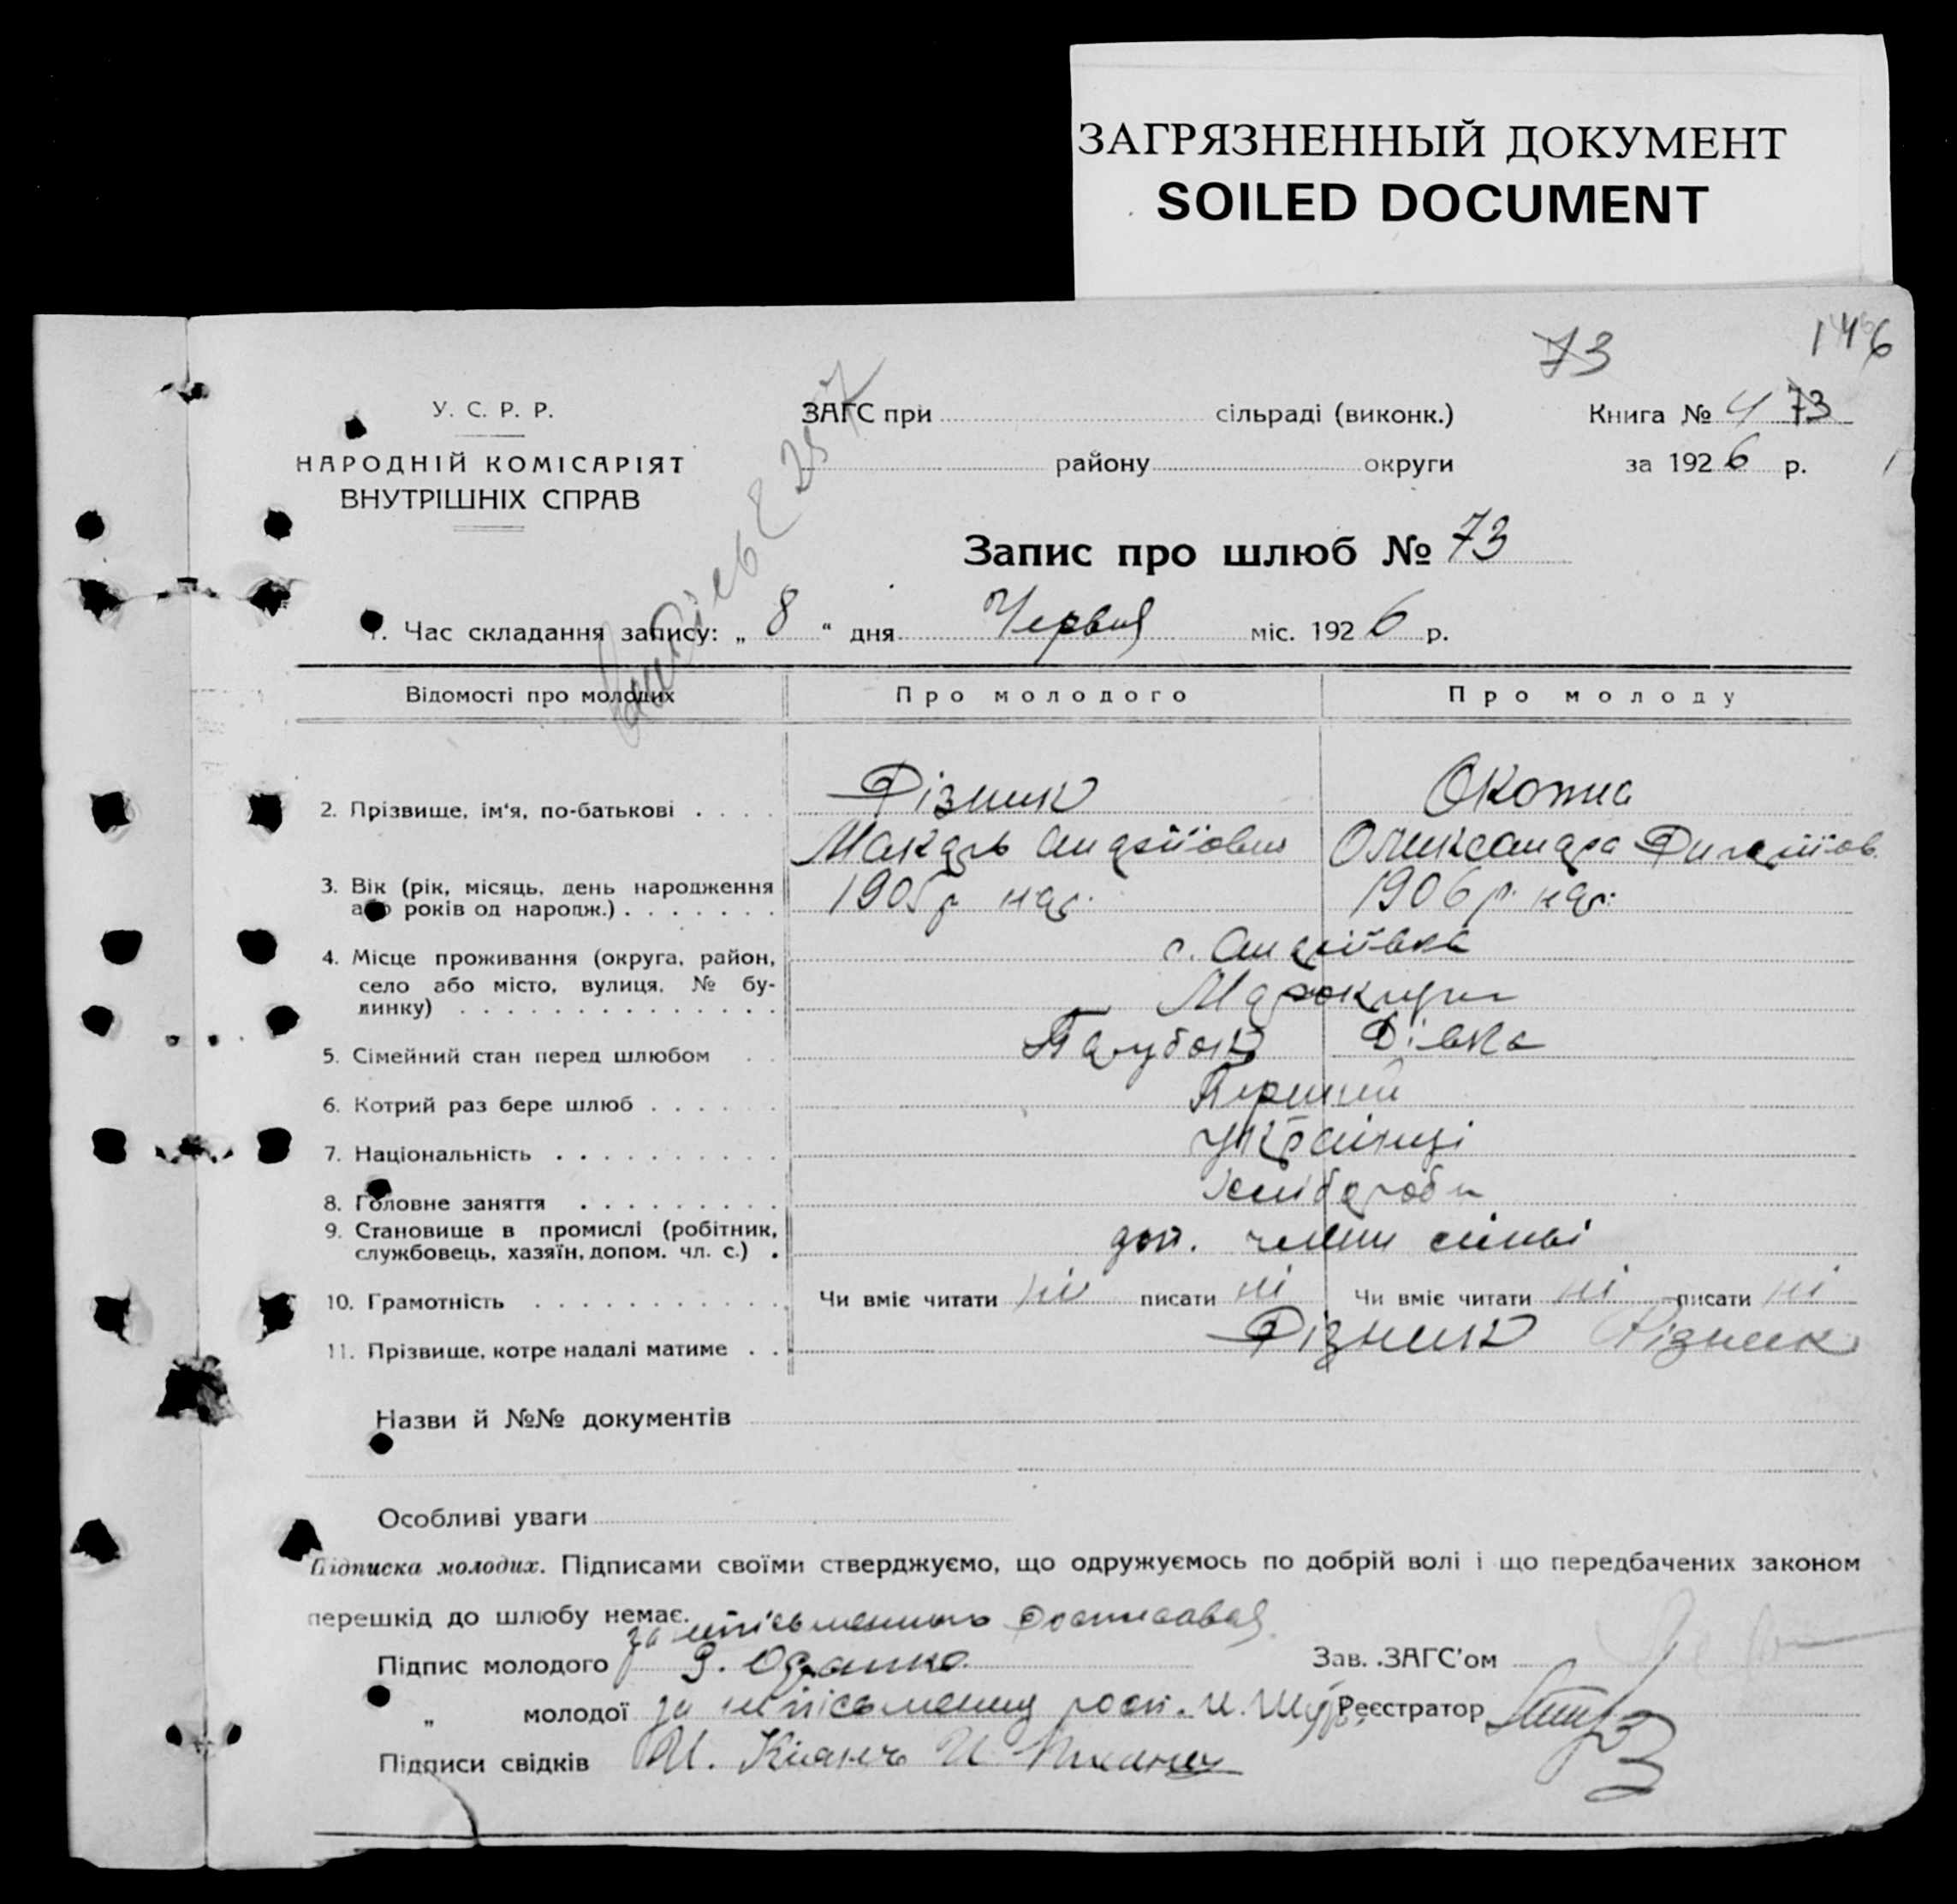 ЗАГРЯЗНЕННЫЙ ДОКУМЕНТ
SOILED DOCUMENT
73
146
У. С. Р. Р.
НАРОДНІЙ КОМІСАРІЯТ
ВНУТРІШНІХ СПРАВ
ЗАГС при сільраді (виконк.)
району округи
Книга № 4 73
за 1926 р.
Запис про шлюб № 73
1. Час складання запису: „ 8 “ дня Червня міс. 1926 р.
Відомості про молодих Про молодого Про молоду
2. Прізвище, ім'я, по-батькові . . . . Різник
Макарь Андрійович Олександра
3. Вік (рік, місяць, день народження
або років од народж.) . . . . . . . 1905 р нар. 1906 р. нар.
4. Місце проживання (округа, район, с. Андріївка
село або місто, вулиця, № бу-
динку) . . . . . . . . . . . . . .
5. Сімейний стан перед шлюбом . . Парубок Дівка
6. Котрий раз бере шлюб . . . . . . Перший
7. Національність . . . . . . . . . . Українці
8. Головне заняття . . . . . . . . . Хлібороби
9. Становище в промислі (робітник,
службовець, хазяїн, допом. чл. с.) . доп. члени сімьі
10. Грамотність . . . . . . . . . . . Чи вміє читати ні писати ні Чи вміє читати ні писати ні
11. Прізвище, котре надалі матиме . . Різник Різник
Назви й №№ документів
Особливі уваги
Підписка молодих. Підписами своїми стверджуємо, що одружуємось по добрій волі і що передбачених законом
перешкід до шлюбу немає.
за неписьменного росписавея
Підпис молодого Зав. ЗАГС'ом
„ молодої за неписьменну росп. И. Реєстратор
Підписи свідків И.